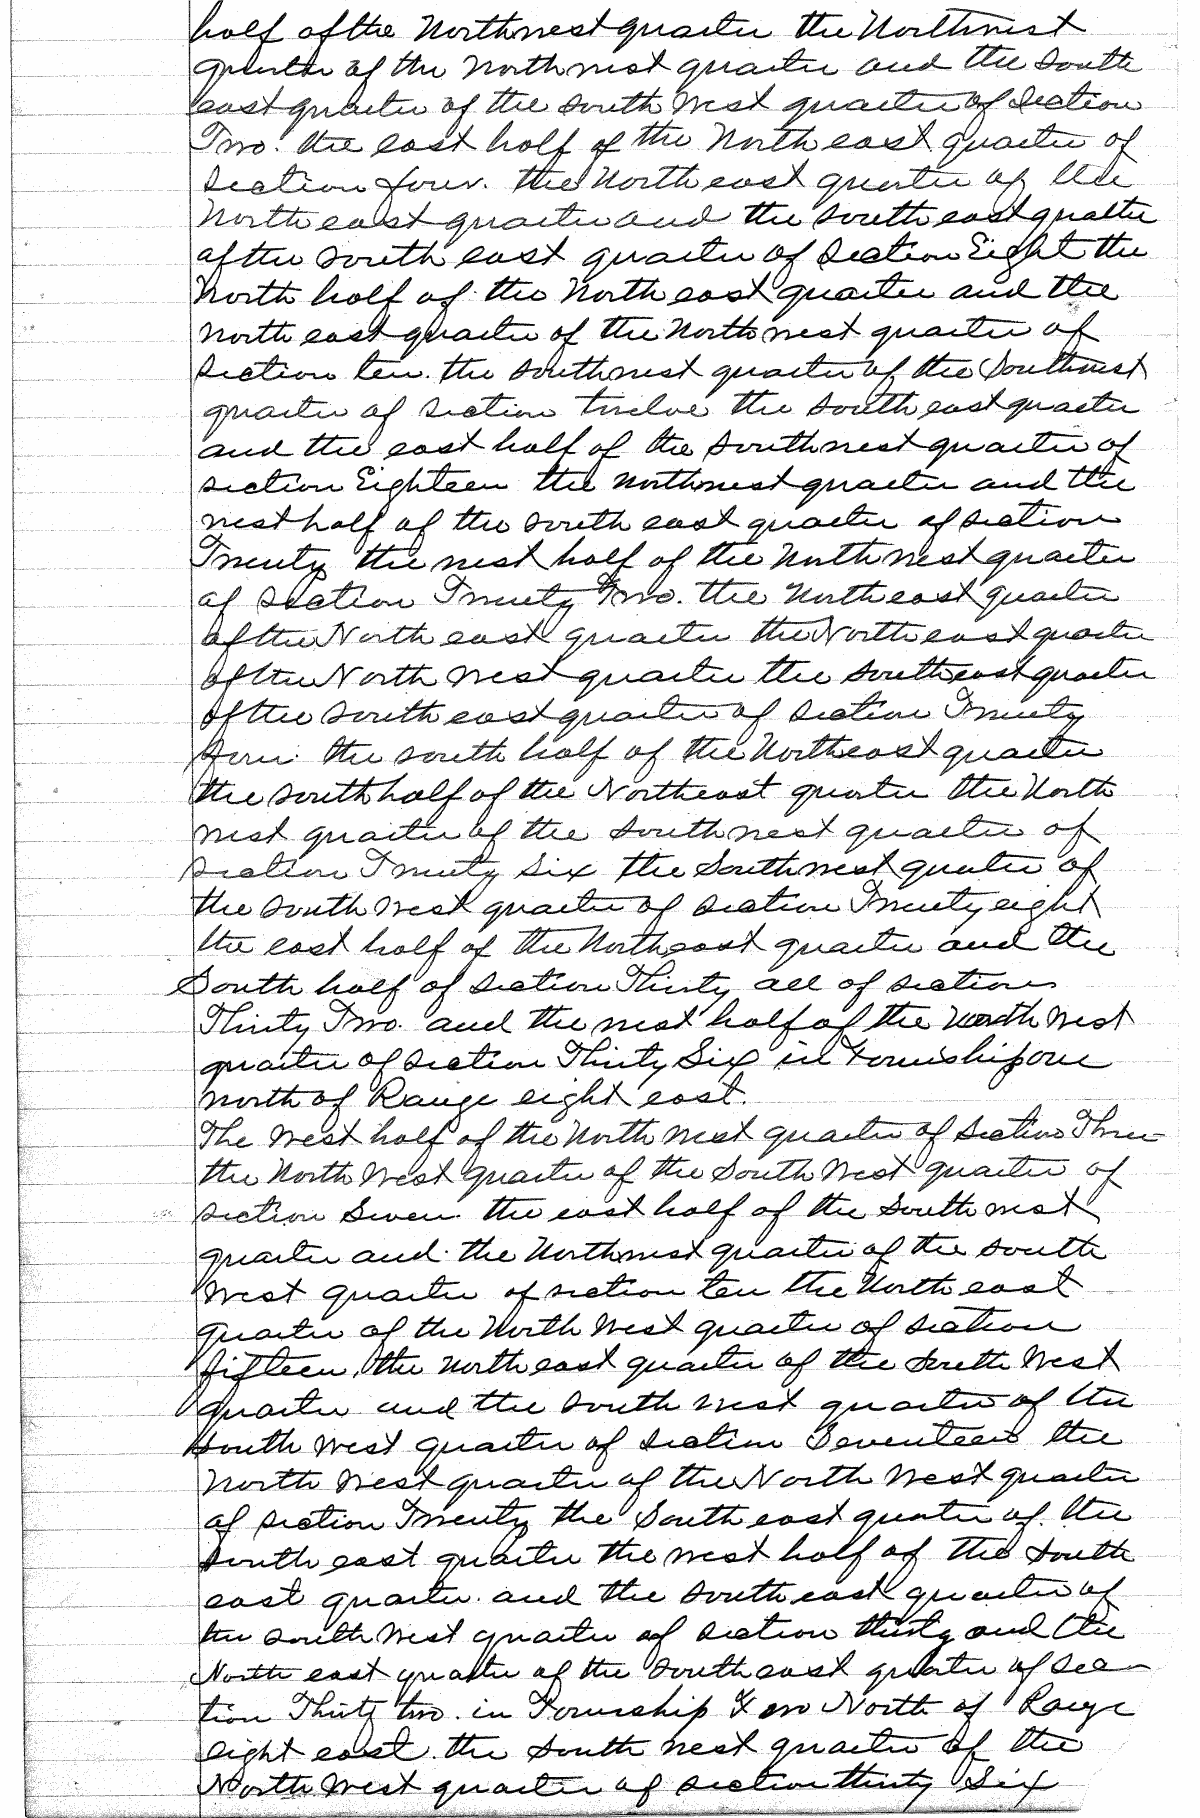 half of the Northwest quarter the Northwest
quarter of the Northwest quarter and the South
east quarter of the South West quarter of Section
Two. the east half of the North east quarter of
Section four. the North east quarter of the
North east quarter and the South east quarter
of the South east quarter of Section Eight the
North half of the North east quarter and the
North east quarter of the North west quarter of
Section ten. the Southwest quarter of the Southwest
quarter of Section twelve the South east quarter
and the east half of the Southwest quarter of
Section Eighteen the Northwest quarter and the
west half of the South east quarter of Section
Twenty the west half of the North West quarter
of Section Twenty Two. the North east quarter
of the North east quarter the North east quarter
of the North West quarter the South east quarter
of the South east quarter of Section Twenty
Four. the South half of the North east quarter
the South half of the Northeast quarter the North
west quarter of the South west quarter of
Section Twenty Six the Southwest quarter of
the South West quarter of Section Twenty eight
the east half of the Northeast quarter and the
South half of Section Thirty all of Section
Thirty Two. and the west half of the North West
quarter of Section Thirty Six in Township one
North of Range eight east.
The West half of the North West quarter of Section Three
the North West quarter of the South West quarter of
Section Seven. the east half of the South west
quarter and the Northwest quarter of the South
West quarter of Section ten the North east
quarter of the North West quarter of Section
fifteen, the North east quarter of the South West
quarter and the South West quarter of the
South West quarter of Section Seventeen the
North West quarter of the North West quarter
of Section Twenty the South east quarter of the
South east quarter the west half of the South
east quarter. and the South east quarter of
the South West quarter of Section thirty and the
North east quarter of the South east quarter of Sec-
tion Thirty two. in Township Two North of Range
eight east. the South West quarter of the
North West quarter of Section thirty Six